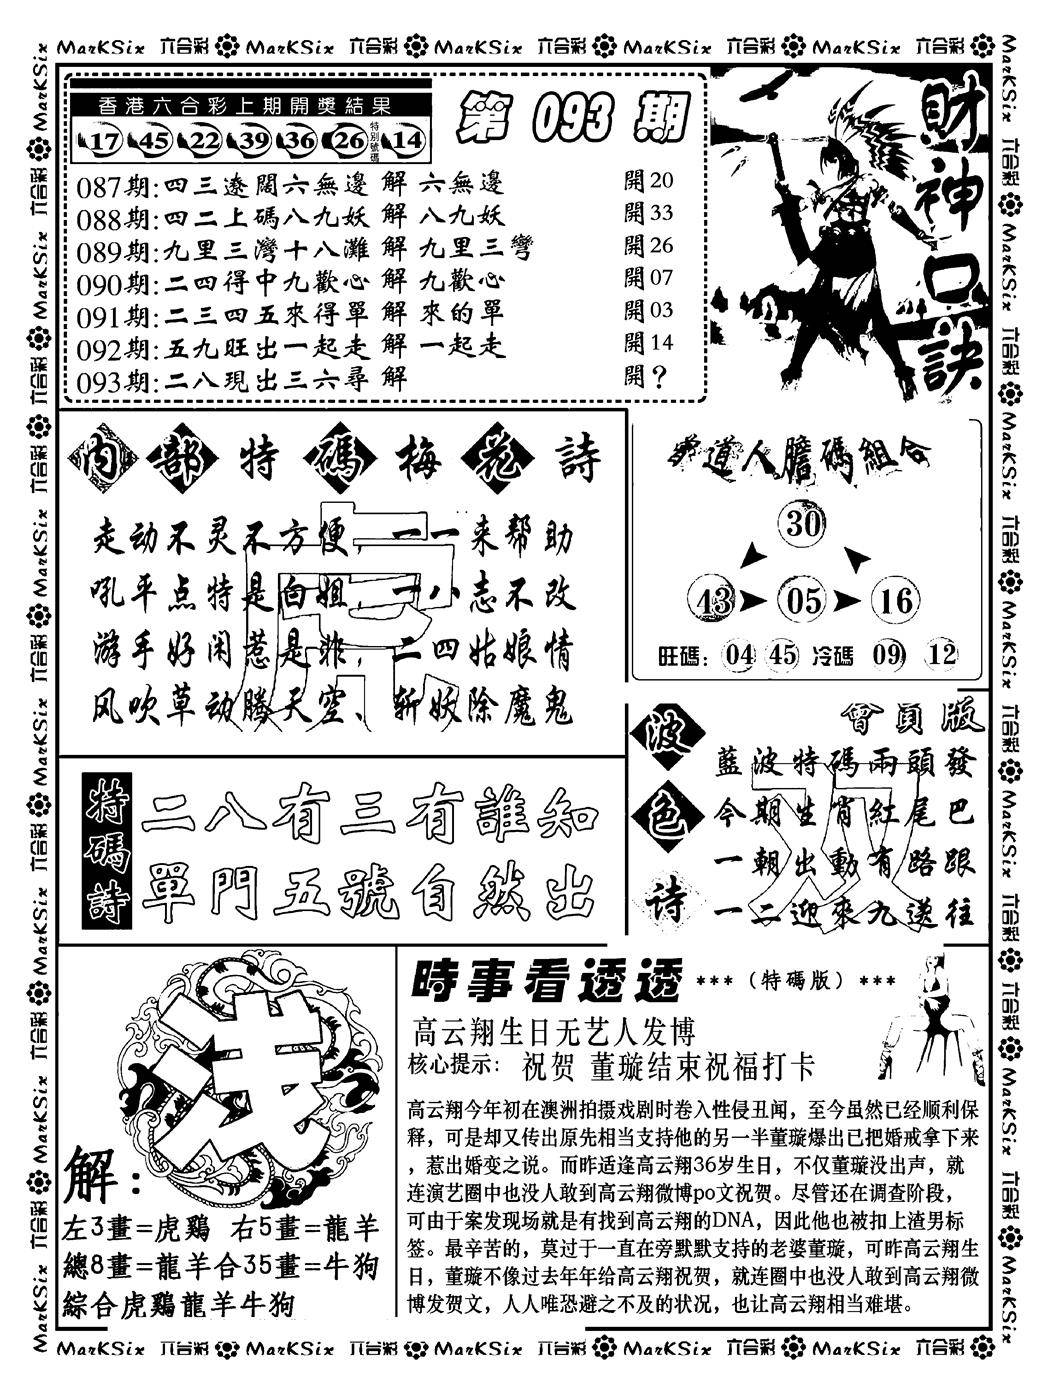 MarKSix 六合彩 MarKSix 六合彩 MarKSix 六合彩 MarKSix 六合彩 MarKSix 六合彩
香港六合彩上期開獎結果
17 45 22 39 36 26 特別號碼 14
第 093 期
087期:四三遼闊六無邊 解 六無邊 開20
088期:四二上碼八九妖 解 八九妖 開33
089期:九里三灣十八灘 解 九里三彎 開26
090期:二四得中九歡心 解 九歡心 開07
091期:二三四五來得單 解 來的單 開03
092期:五九旺出一起走 解 一起走 開14
093期:二八現出三六尋 解 開?
財神口訣
內部特碼梅花詩
走动不灵不方便,一一来帮助
吼平点特是白姐,一八志不改
游手好闲惹是非,二四姑娘情
风吹草动腾天空、斩妖除魔鬼
道人膽碼組合
30
43 05 16
旺碼: 04 45 冷碼 09 12
特碼詩
二八有三有誰知
單門五號自然出
波色诗
會員版
藍波特碼兩頭發
今期生肖紅尾巴
一朝出動有路跟
一二迎來九送往
浅
解:
左3畫=虎鷄 右5畫=龍羊
總8畫=龍羊合35畫=牛狗
綜合虎鷄龍羊牛狗
時事看透透 ***(特碼版)***
高云翔生日无艺人发博
核心提示: 祝贺 董璇结束祝福打卡
高云翔今年初在澳洲拍摄戏剧时卷入性侵丑闻,至今虽然已经顺利保
释,可是却又传出原先相当支持他的另一半董璇爆出已把婚戒拿下来
,惹出婚变之说。而昨适逢高云翔36岁生日,不仅董璇没出声,就
连演艺圈中也没人敢到高云翔微博po文祝贺。尽管还在调查阶段,
可由于案发现场就是有找到高云翔的DNA,因此他也被扣上渣男标
签。最辛苦的,莫过于一直在旁默默支持的老婆董璇,可昨高云翔生
日,董璇不像过去年年给高云翔祝贺,就连圈中也没人敢到高云翔微
博发贺文,人人唯恐避之不及的状况,也让高云翔相当难堪。
MarKSix 六合彩 MarKSix 六合彩 MarKSix 六合彩 MarKSix 六合彩 MarKSix 六合彩